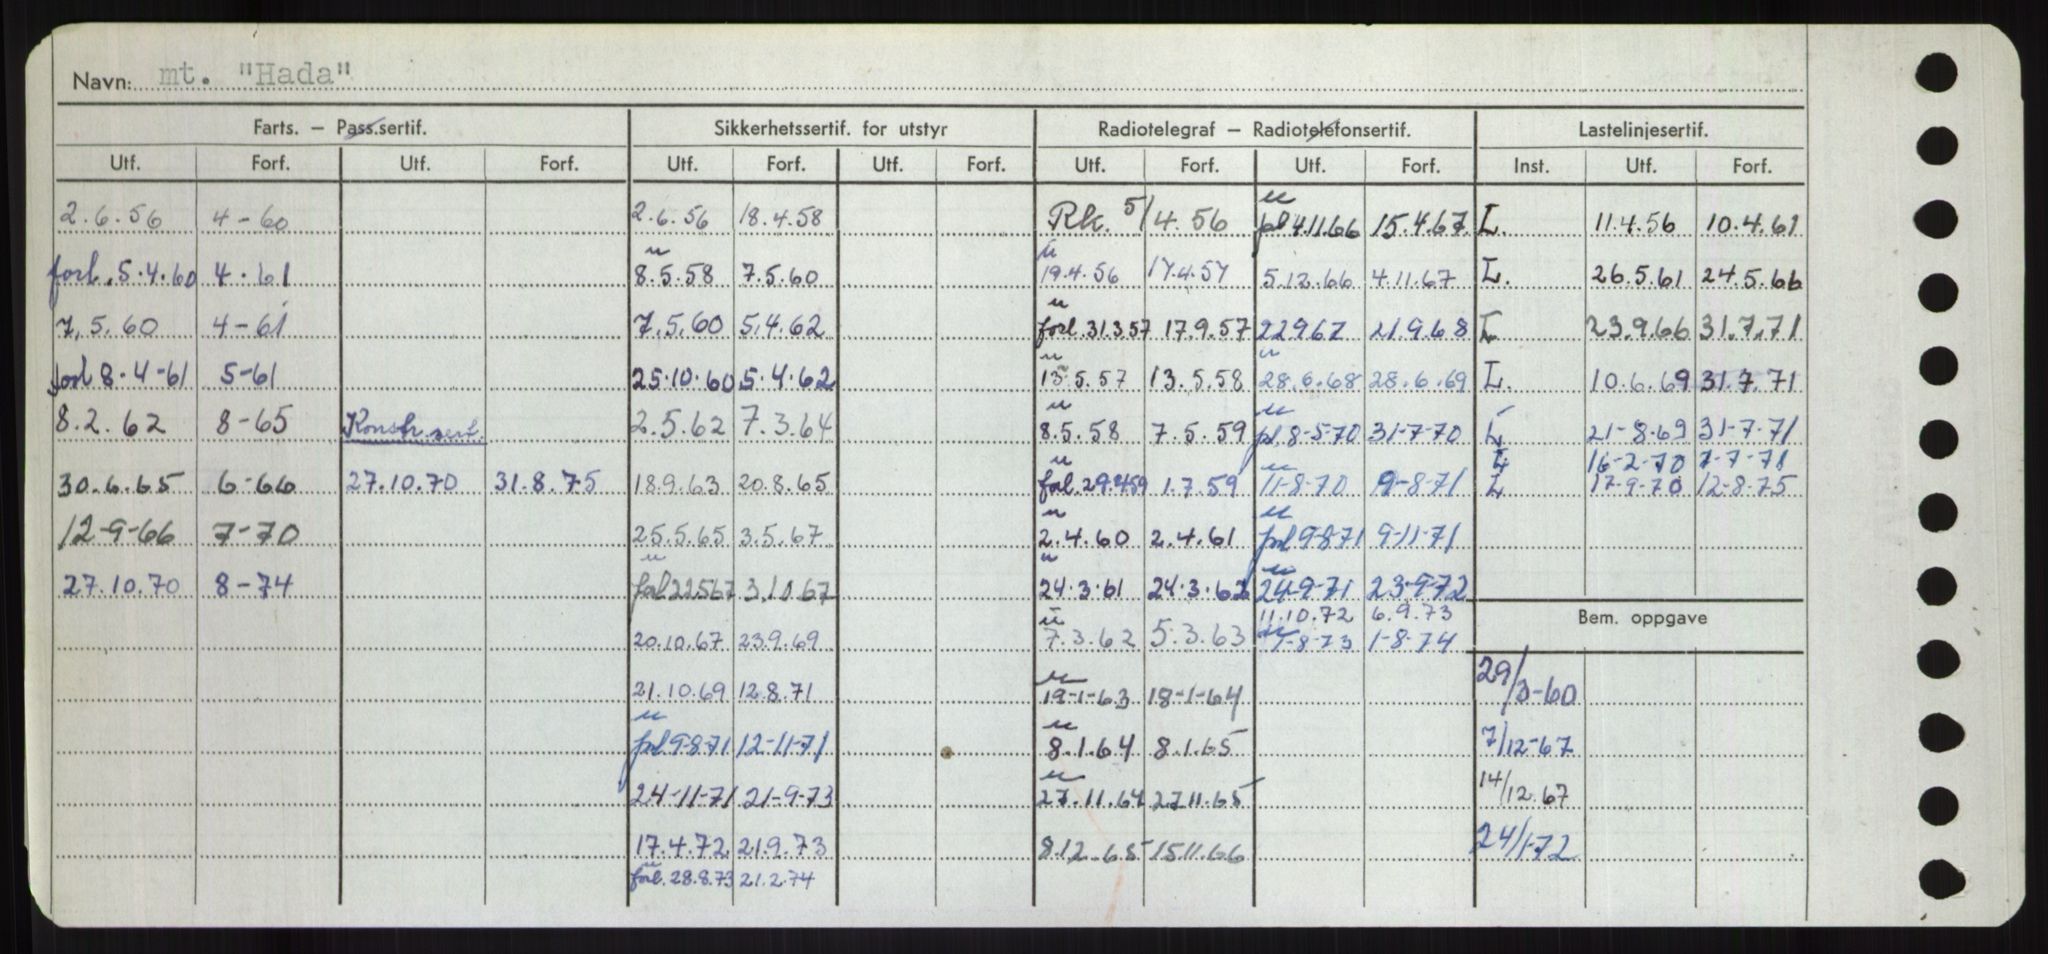 Navn: mt. "Hada"
Farts. – Pass.sertif. Sikkerhetssertif. for utstyr Radiotelegraf – Radiotelefonsertif. Lastelinjesertif.
Utf. Forf. Utf. Forf. Utf. Forf. Utf. Forf. Utf. Forf. Utf. Forf. Inst. Utf. Forf.
2.6.56 4-60 2.6.56 18.4.58 Rk. 5/4.56 u forl 4.11.66 15.4.67 L. 11.4.56 10.4.61
forl. 5.4.60 4.61 u 8.5.58 7.5.60 u 19.4.56 17.4.57 5.12.66 4.11.67 L. 26.5.61 24.5.66
7.5.60 4-61 7.5.60 5.4.62 u forl. 31.3.57 17.9.57 22967 21.9.68 L 23.9.66 31.7.71
forl 8.4-61 5-61 25.10.60 5.4.62 u 13.5.57 13.5.58 u 28.6.68 28.6.69 L. 10.6.69 31.7.71
8.2.62 8-65 Konstr.sert. 2.5.62 7.3.64 u 8.5.58 7.5.59 u fl. 8-5-70 31-7-70 L 21-8.69 31-7-71
L 16-2-70 7-7-71
30.6.65 6-66 27.10.70 31.8.75 18.9.63 20.8.65 u forl. 29.4.59 1.7.59 u 11-8-70 9-8-71 L 17-9-70 12-8-75
12-9-66 7-70 25.5.65 3.5.67 u 2.4.60 2.4.61 u forl 9-8-71 9-11-71
27.10.70 8-74 u forl 22567 3.10.67 u 24.3.61 24.3.62 u 24-9-71 23-9-72
11.10.72 6.9.73
Bem. oppgave
20.10.67 23.9.69 u 7.3.62 5.3.63 u 1-8-73 1-8-74
21.10.69 12.8.71 u 19-1-63 18-1-64 29/3-60
u forl 9-8-71 12-11-71 u 8.1.64 8.1.65 7/12-67
24-11-71 21-9-73 u 27.11.64 27.11.65 14/12.67
17.4.72 21.9.73 8.12.65 15.11.66 24/1-72
u forl. 28.8.73 21.2.74